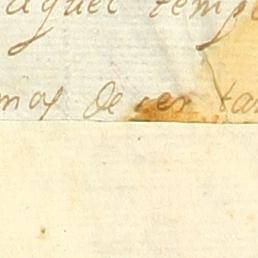 aquel temp
mos de ser tan